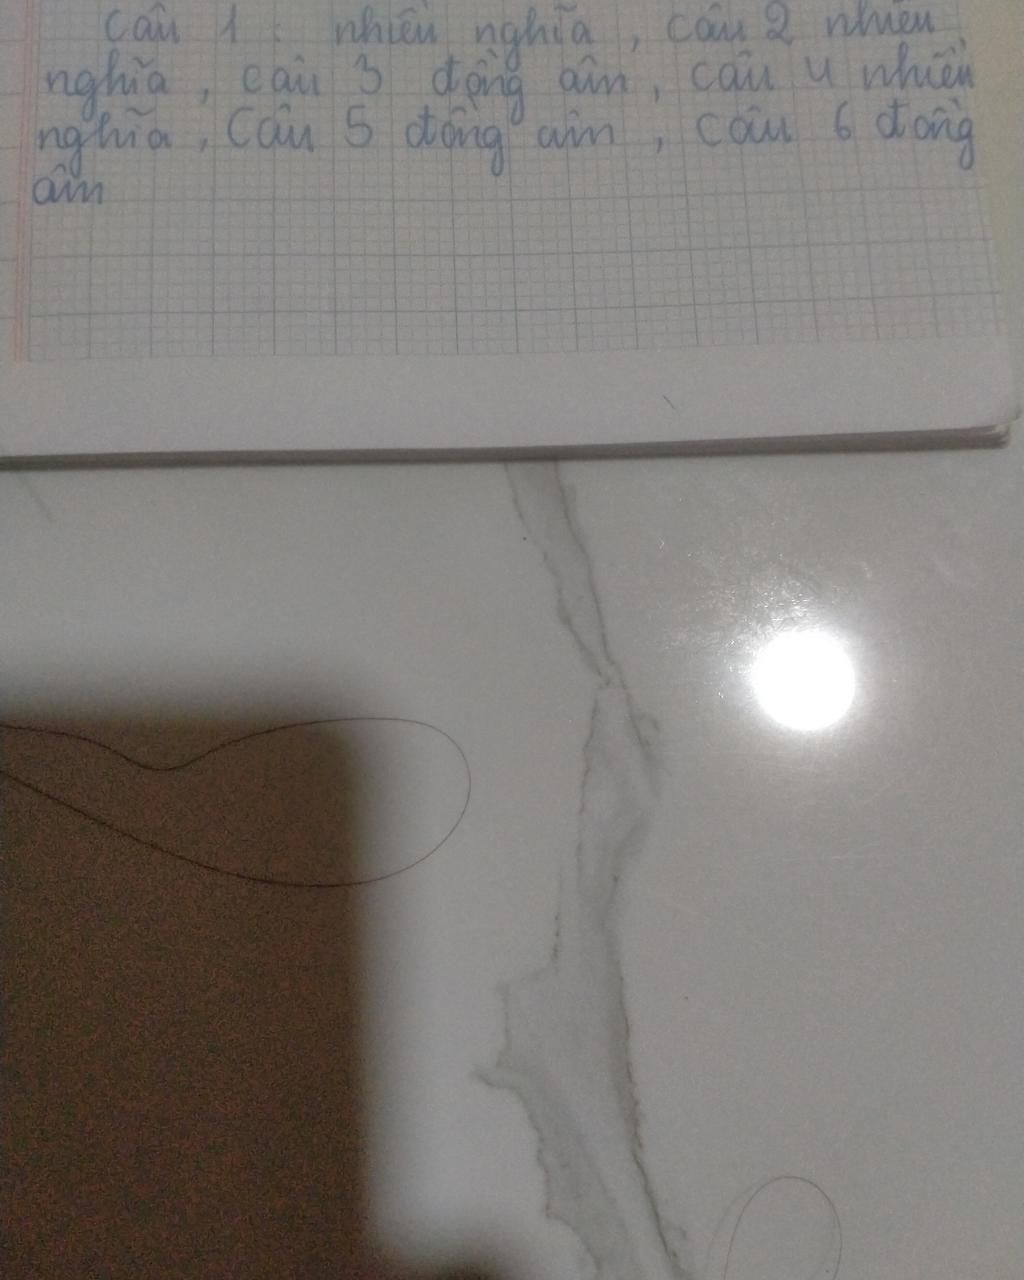 Câu 1 : nhiều nghĩa , câu 2 nhiều
nghĩa , câu 3 đồng âm , câu 4 nhiều
nghĩa , Câu 5 đồng âm , câu 6 đồng
âm